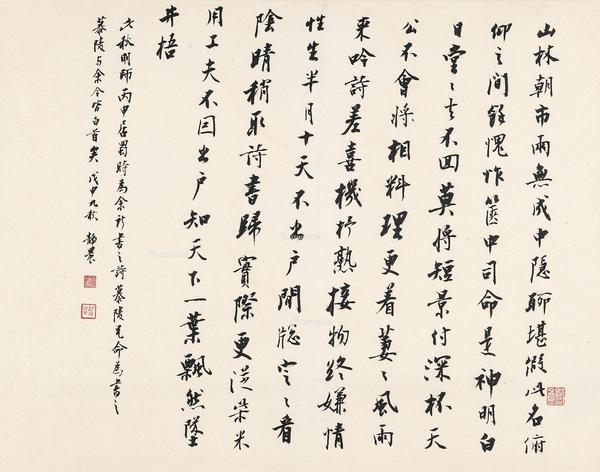 山林朝市兩無成中隱聊堪假此名俯
仰之間餘愧怍篋中司命是神明白
日堂〻去不回莫將短景付深杯天
公不會將相料理更着萋〻風雨
來吟詩差喜機杼熟接物終嫌情
性生半月十天不出戶閒牕定〻看
陰晴稍取詩書歸實際更從柴米
用工夫不因出戶知天下一葉飄然墜
井梧
此秋明師丙申居蜀時為余所書之詩慕陵兄命為書之
慕陵与余今皆白首矣 戊申九秋 靜農